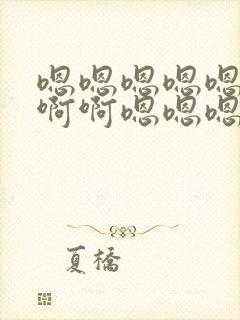 嗯嗯嗯嗯嗯
啊啊嗯嗯嗯
夏橋